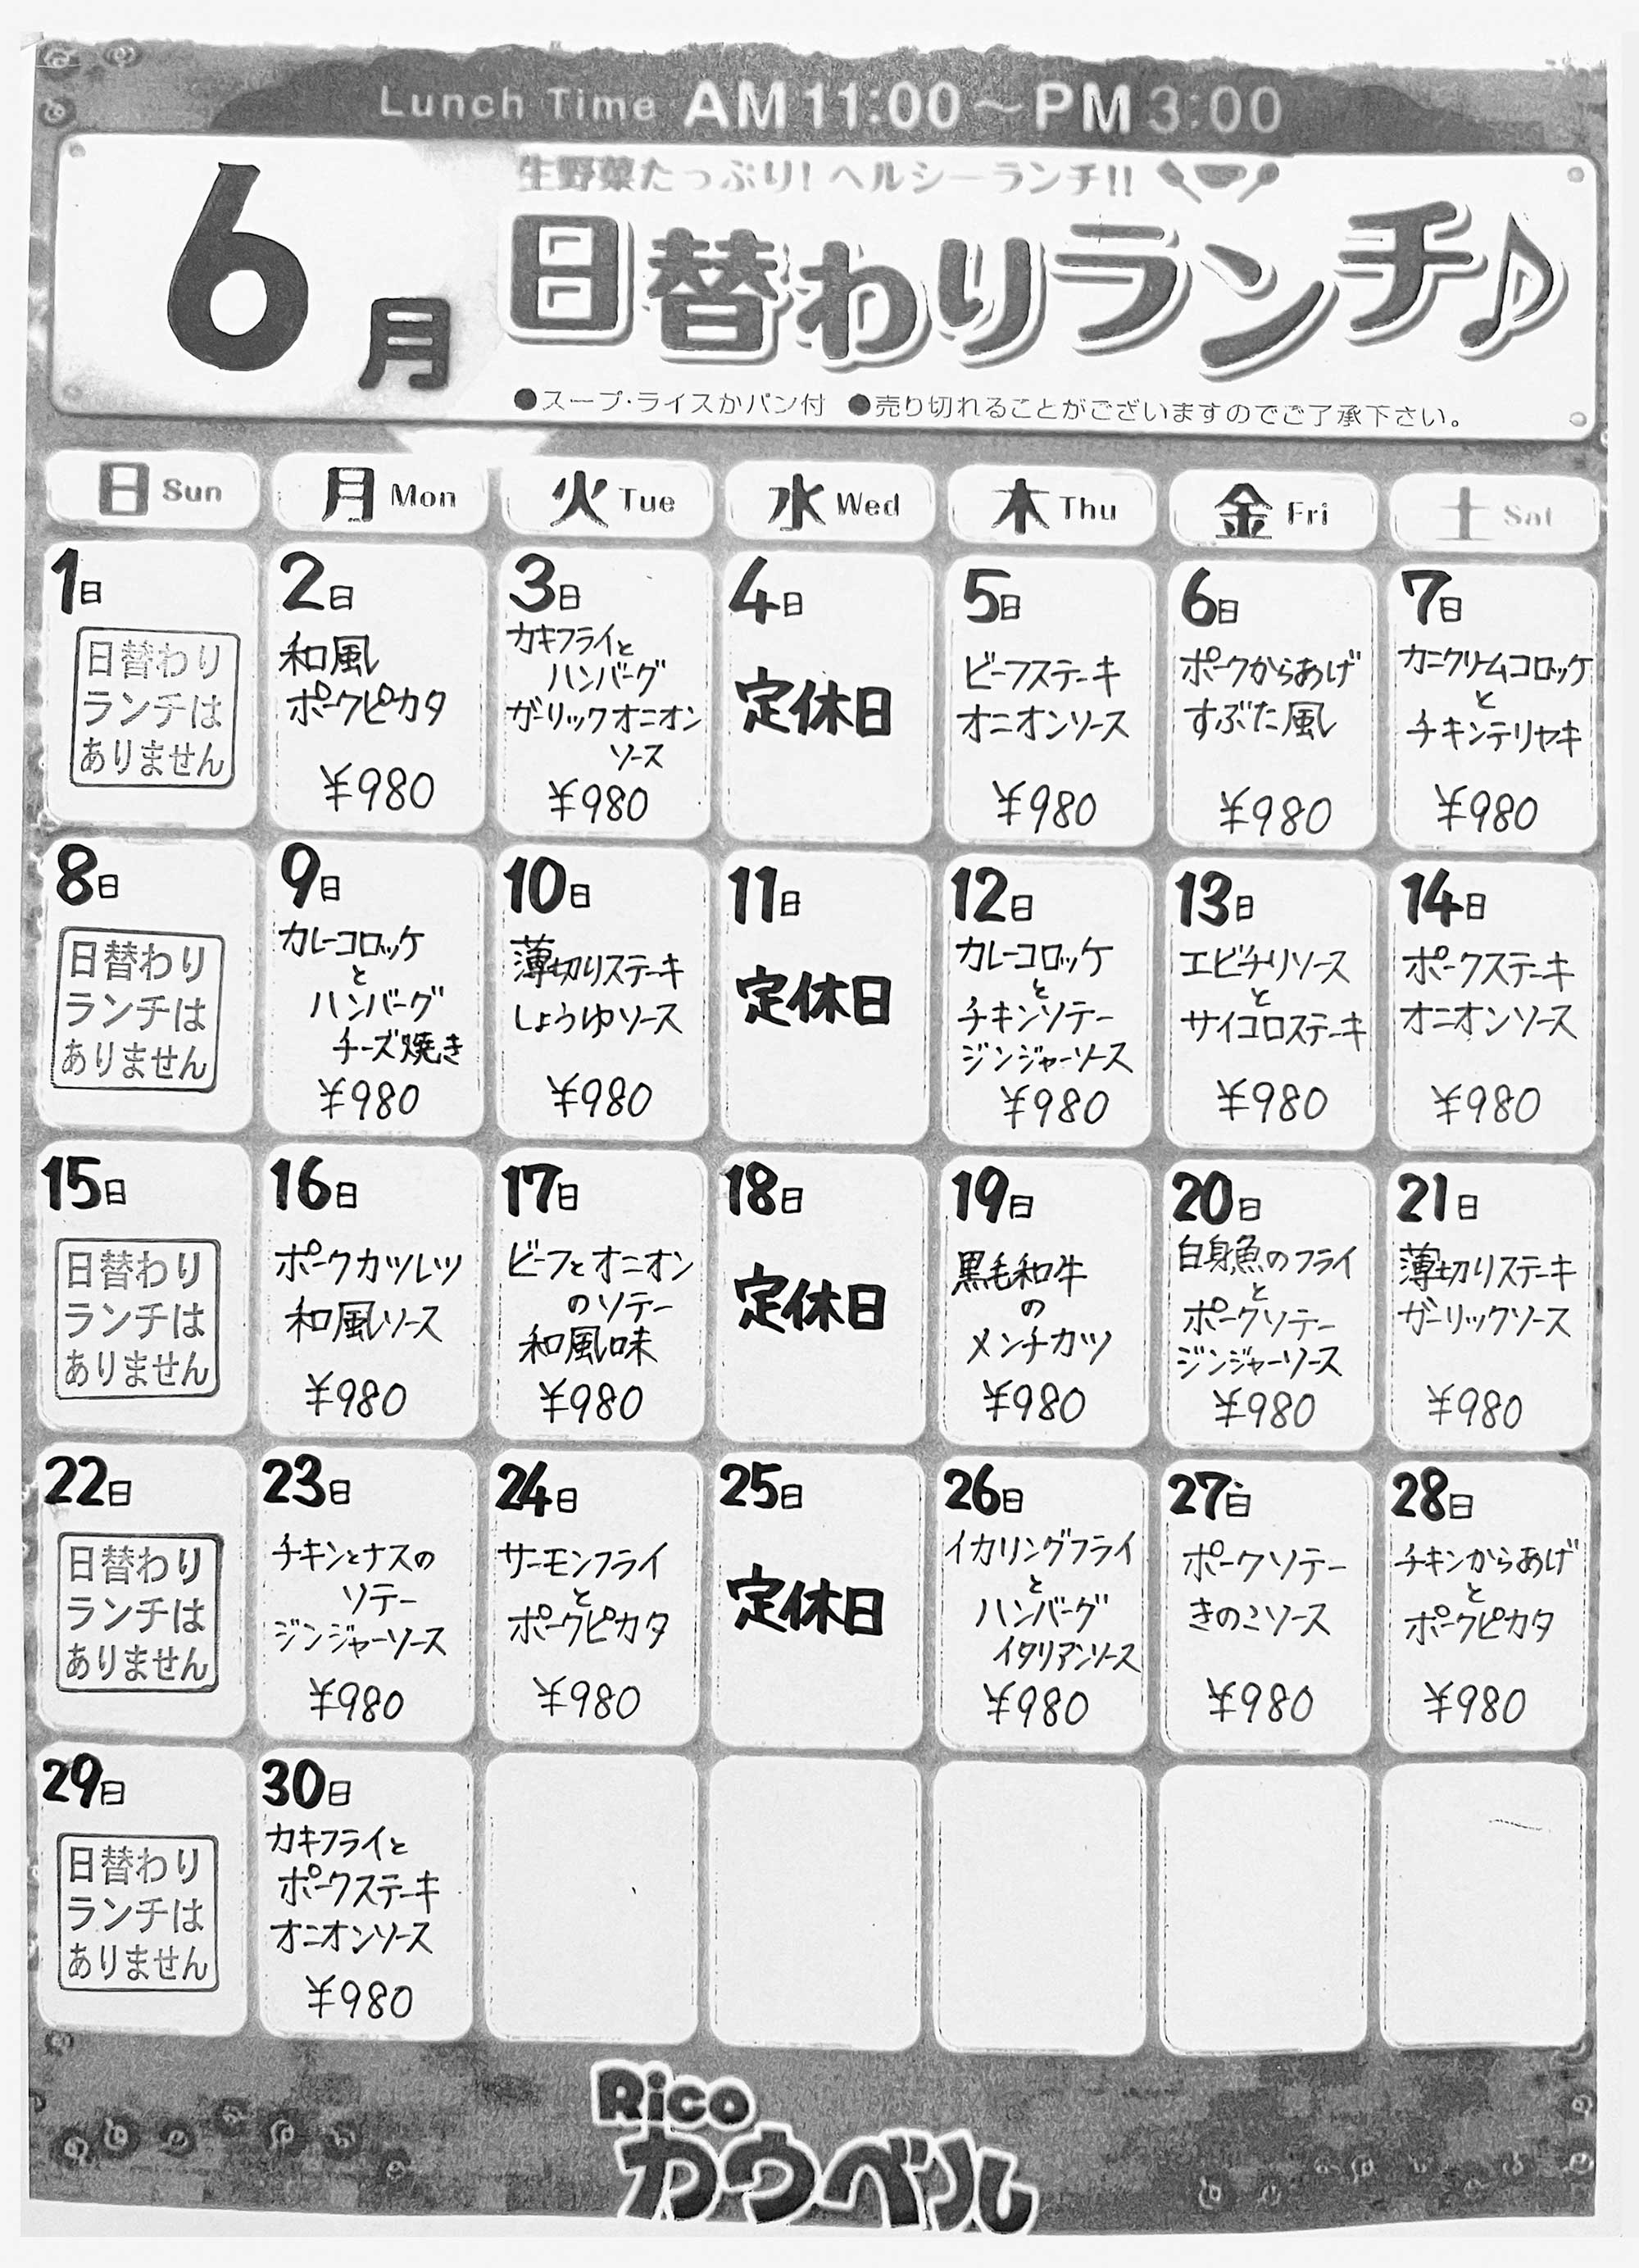 Lunch Time AM 11:00～PM 3:00
生野菜たっぷり！ヘルシーランチ!!
6月
日替わりランチ♪
●スープ・ライスかパン付 ●売り切れることがございますのでご了承下さい。
日 Sun
月 Mon
火 Tue
水 Wed
木 Thu
金 Fri
土 Sat
1日
日替わり
ランチは
ありません
2日
和風
ポークピカタ
¥980
3日
カキフライと
ハンバーグ
ガーリックオニオン
ソース
¥980
4日
定休日
5日
ビーフステーキ
オニオンソース
¥980
6日
ポークからあげ
すぶた風
¥980
7日
カニクリームコロッケ
と
チキンテリヤキ
¥980
8日
日替わり
ランチは
ありません
9日
カレーコロッケ
と
ハンバーグ
チーズ焼き
¥980
10日
薄切りステーキ
しょうゆソース
¥980
11日
定休日
12日
カレーコロッケ
と
チキンソテー
ジンジャーソース
¥980
13日
エビチリソース
と
サイコロステーキ
¥980
14日
ポークステーキ
オニオンソース
¥980
15日
日替わり
ランチは
ありません
16日
ポークカツレツ
和風ソース
¥980
17日
ビーフとオニオン
のソテー
和風味
¥980
18日
定休日
19日
黒毛和牛
の
メンチカツ
¥980
20日
白身魚のフライ
と
ポークソテー
ジンジャーソース
¥980
21日
薄切りステーキ
ガーリックソース
¥980
22日
日替わり
ランチは
ありません
23日
チキンとナスの
ソテー
ジンジャーソース
¥980
24日
サーモンフライ
と
ポークピカタ
¥980
25日
定休日
26日
イカリングフライ
と
ハンバーグ
イタリアンソース
¥980
27日
ポークソテー
きのこソース
¥980
28日
チキンからあげ
と
ポークピカタ
¥980
29日
日替わり
ランチは
ありません
30日
カキフライと
ポークステーキ
オニオンソース
¥980
Rico
カウベル